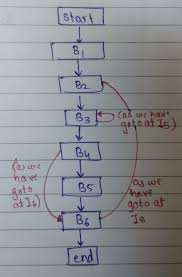 start
B1
B2
B3
(as we have
goto at I5)
B4
(as we
have
goto
at I6)
B5
as we
have
goto at
I8
B6
end